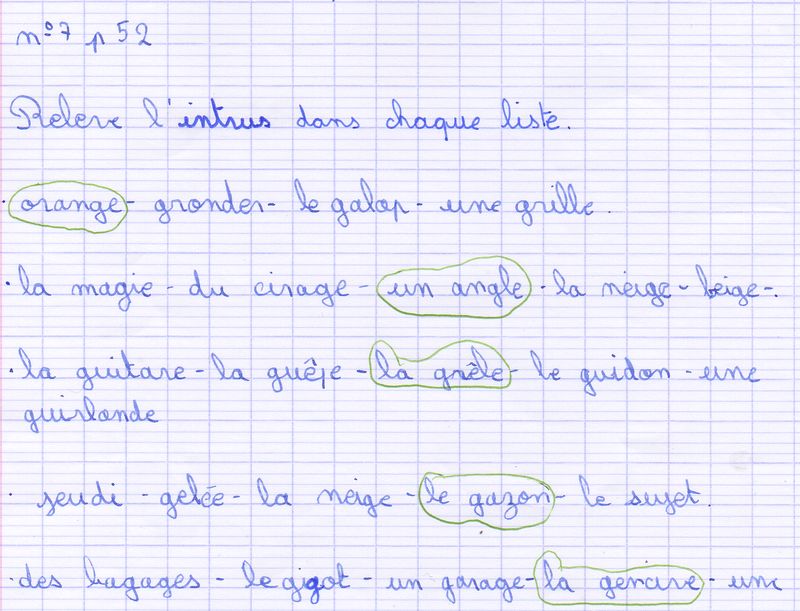 n°7 p 52
Relève l'intrus dans chaque liste.
· orange - gronder - le galop - une grille.
· la magie - du cirage - un angle - la neige - beige -.
· la guitare - la guêpe - la grêle - le guidon - une
guirlande
· jeudi - gelée - la neige - le gazon - le sujet.
· des bagages - le gigot - un garage - la gencive - une